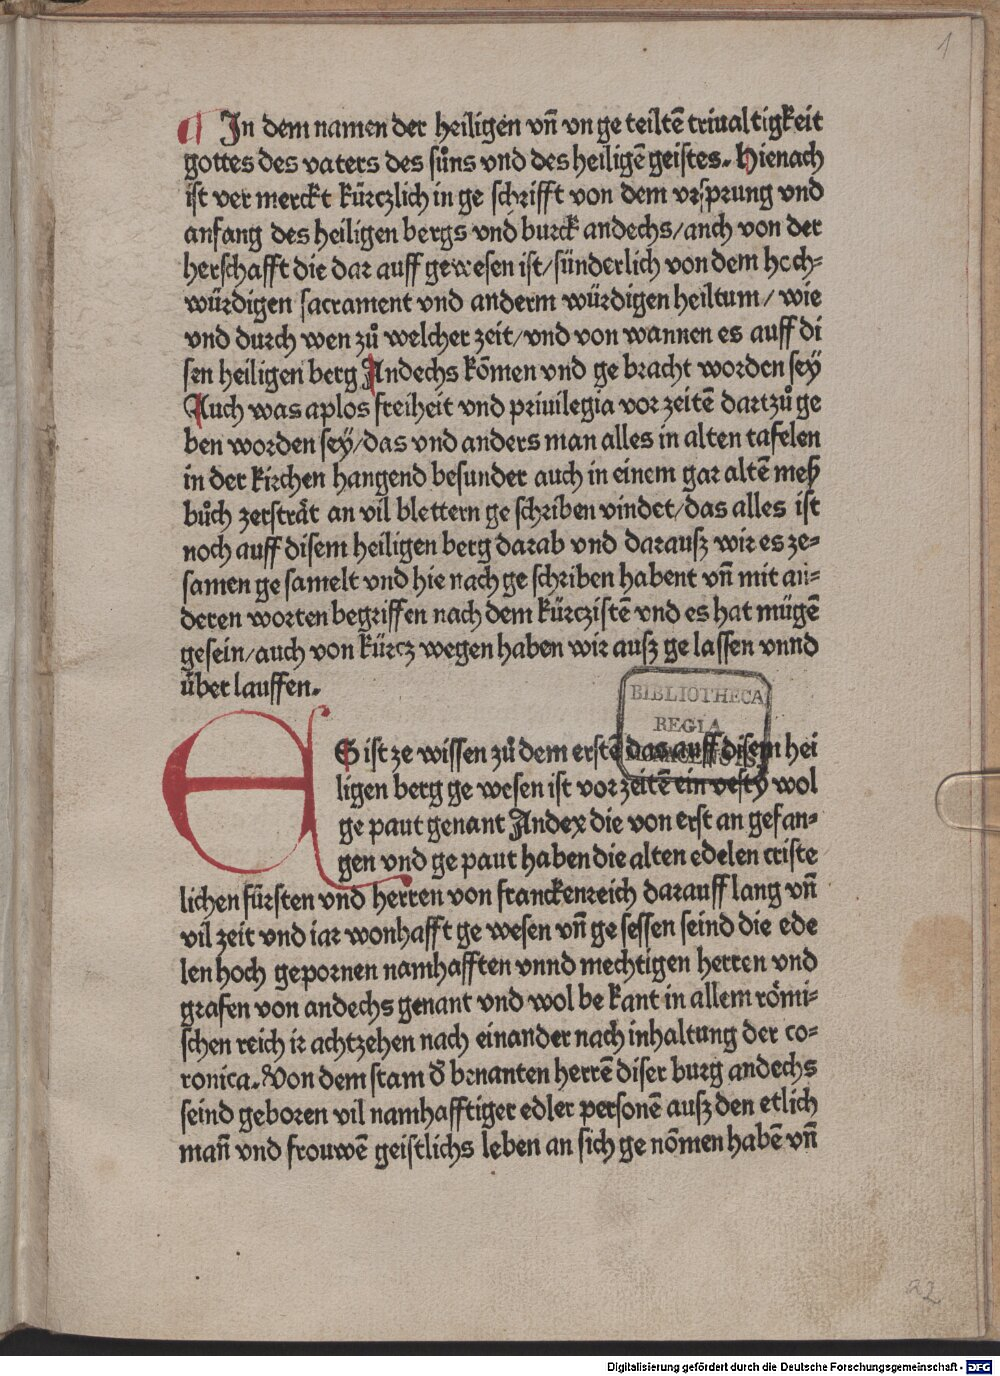 1
¶ In dem namen der heiligen vn̄ vn ge teiltē triualtigkeit
gottes des vaters des sůns vnd des heiligē geistes. Hienach
ist ver merckt kürczlich in ge schrifft von dem vrsprung vnd
anfang des heiligen bergs vnd burck andechs/auch von der
herschafft die dar auff gewesen ist/sünderlich von dem hoch-
würdigen sacrament vnd anderm würdigen heiltum/ wie
vnd durch wen zů welcher zeit/vnd von wannen es auff di
sen heiligen berg Andechs kōmen vnd ge bracht worden sey
Auch was aplos freiheit vnd priuilegia vor zeitē dartzů ge
ben worden sey/das vnd anders man alles in alten tafelen
in der kirchen hangend besunder auch in einem gar altē meß
bůch zersträt an vil blettern ge schriben vindet/das alles ist
noch auff disem heiligen berg darab vnd darausz wir es ze-
samen ge samelt vnd hie nach ge schriben habent vn̄ mit an-
deren worten begriffen nach dem kürczistē vnd es hat mügē
gesein/auch von kürcz wegen haben wir ausz ge lassen vnnd
über lauffen.
BIBLIOTHECA
REGIA
MONACENSIS
ES ist ze wissen zů dem erstē das auff disem hei
ligen berg ge wesen ist vor zeitē ein vesty wol
ge paut genant Andex die von erst an gefan-
gen vnd ge paut haben die alten edelen criste
lichen fürsten vnd herren von franckenreich darauff lang vn̄
vil zeit vnd iar wonhafft ge wesen vn̄ ge sessen seind die ede
len hoch gepornen namhafften vnnd mechtigen herren vnd
grafen von andechs genant vnd wol be kant in allem römi-
schen reich ir achtzehen nach einander nach inhaltung der co-
ronica. Von dem stam d̄ benanten herrē diser burg andechs
seind geboren vil namhafftiger edler personē ausz den etlich
man̄ vnd frouwē geistlichs leben an sich ge nōmen habē vn̄
22
Digitalisierung gefördert durch die Deutsche Forschungsgemeinschaft - DFG